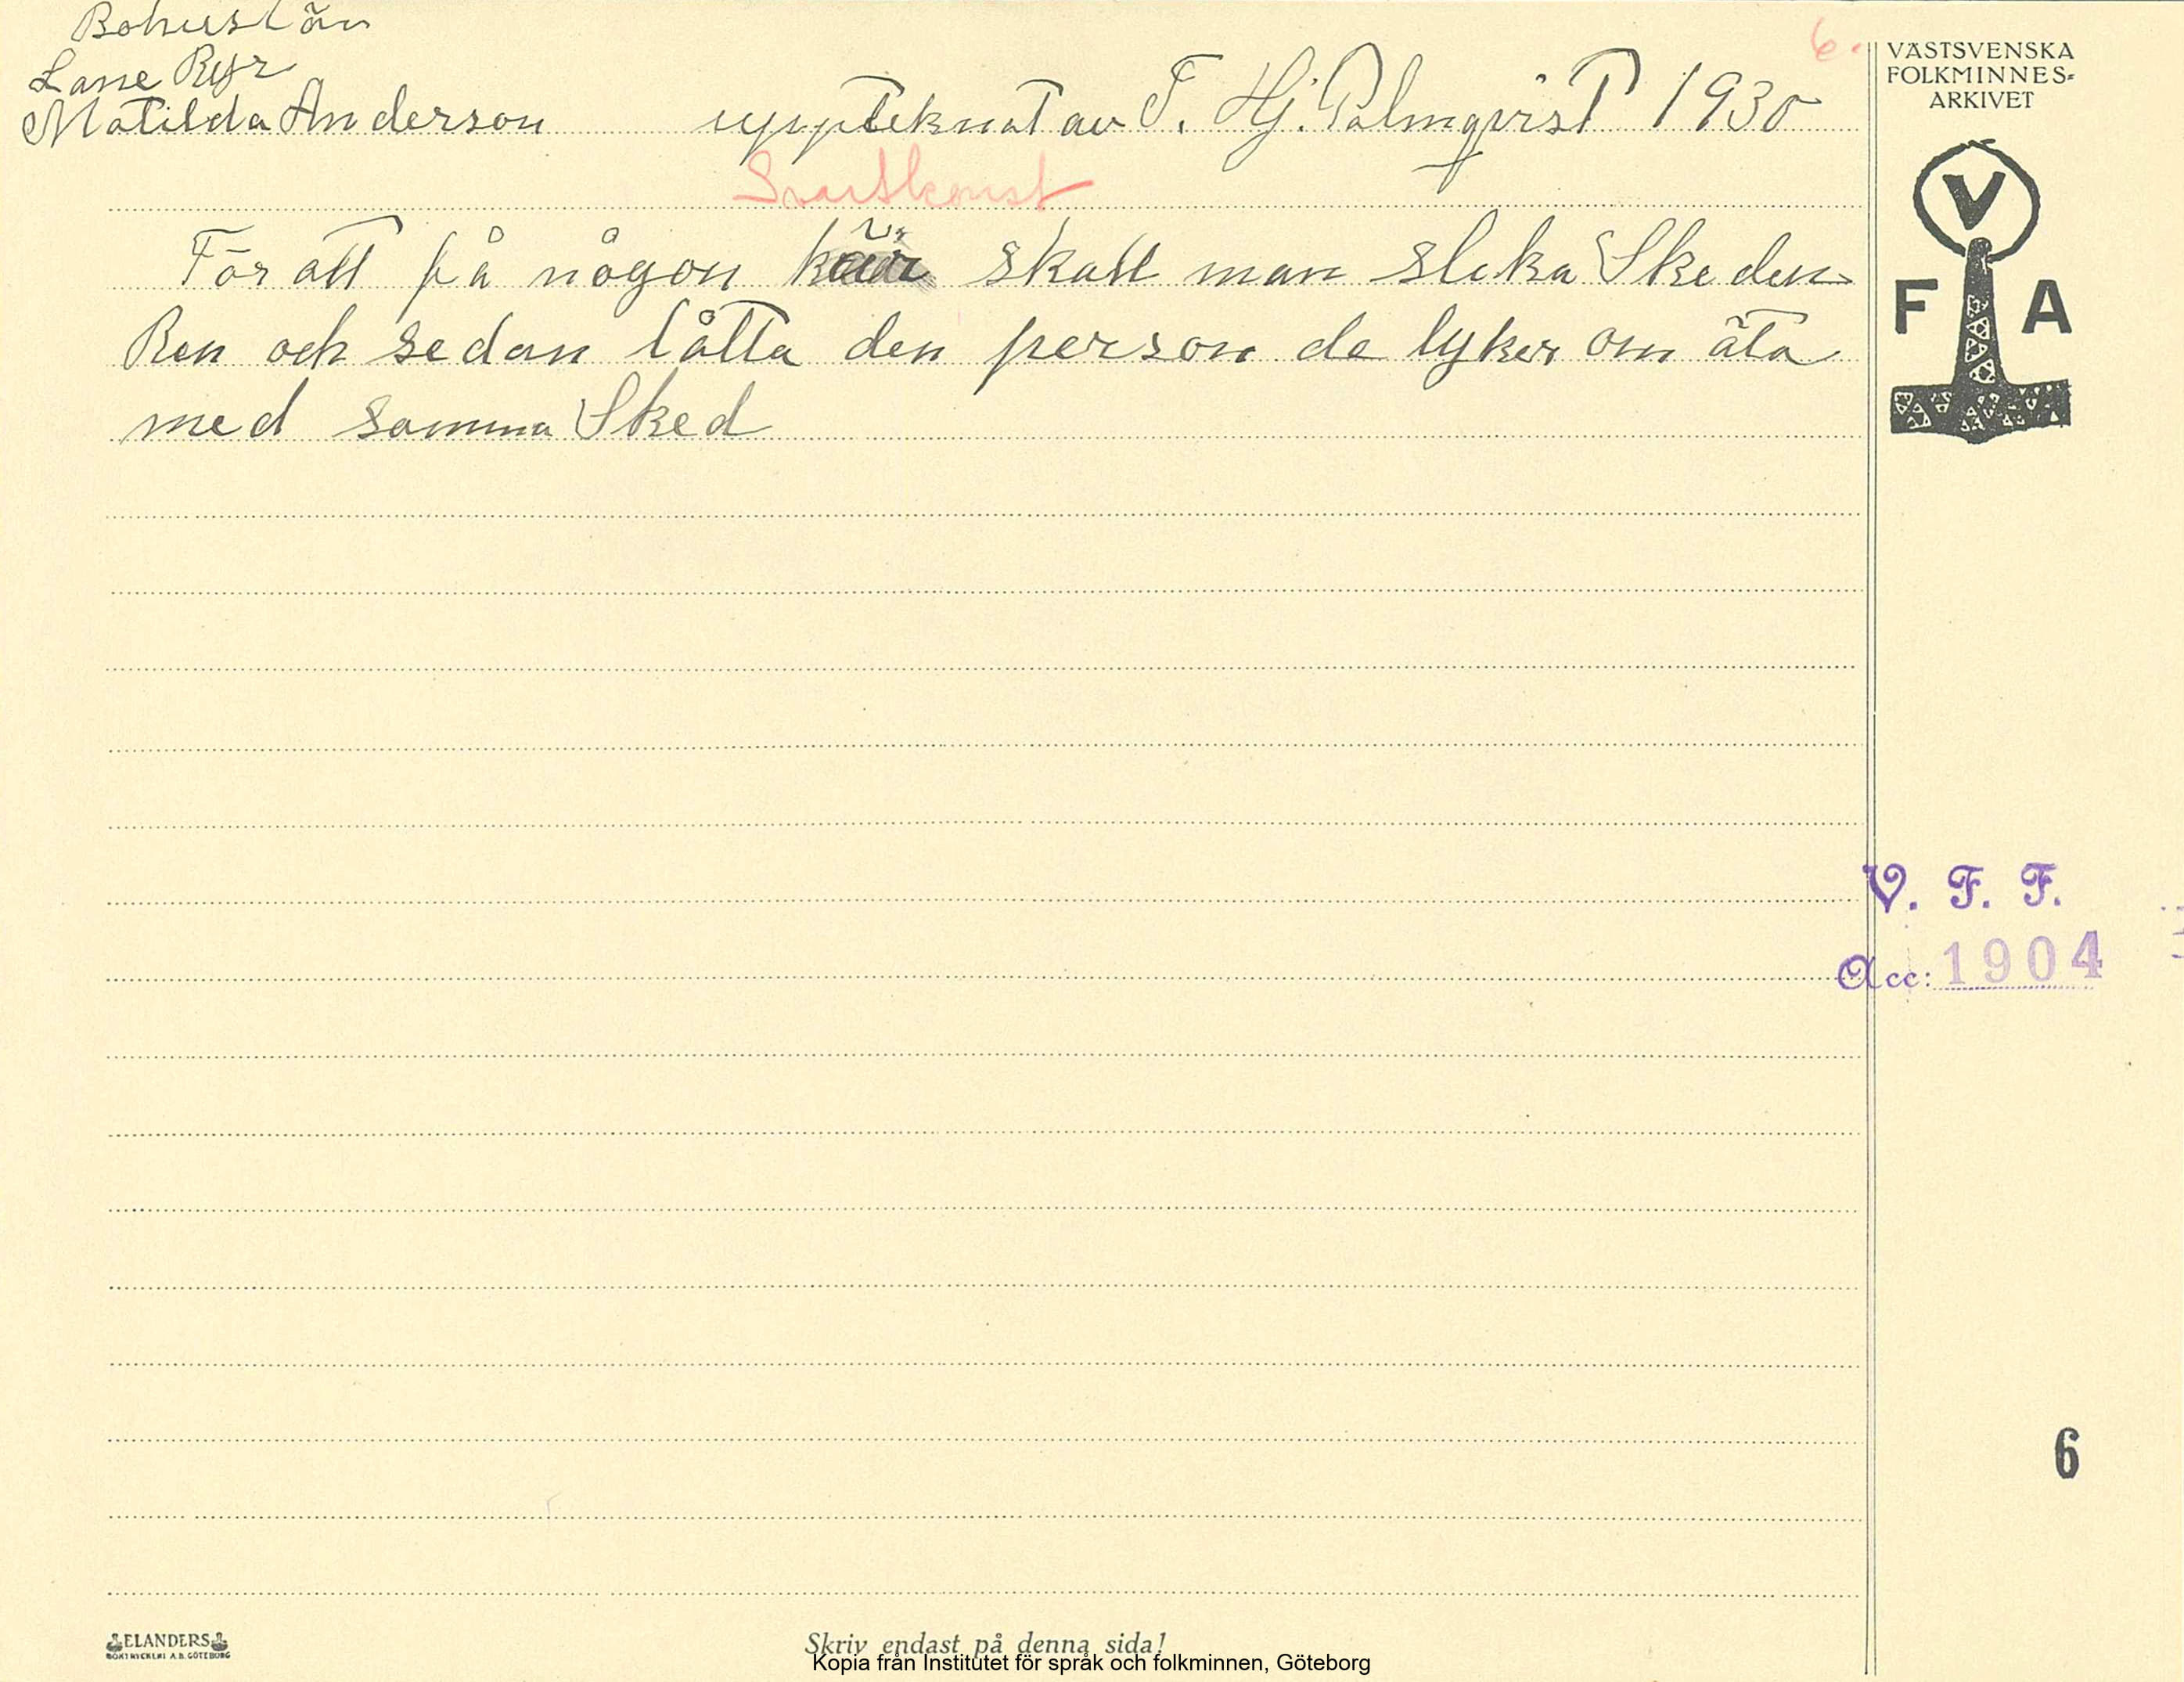 Bohuslän
Lane Ryr
Matilda Anderson uppteknat av F. Hj. Palmqvist 1930
6.
Svartkonst
För att få någon kär skall man sleka Skeden
Ren och sedan låtta den person de lyker om äta
med samma Sked
VÄSTSVENSKA
FOLKMINNES-
ARKIVET
V
F A
V. F. F.
Acc: 1904
6
ELANDERS
BOKTRYCKERI A.B. GÖTEBORG
Skriv endast på denna sida!
Kopia från Institutet för språk och folkminnen, Göteborg